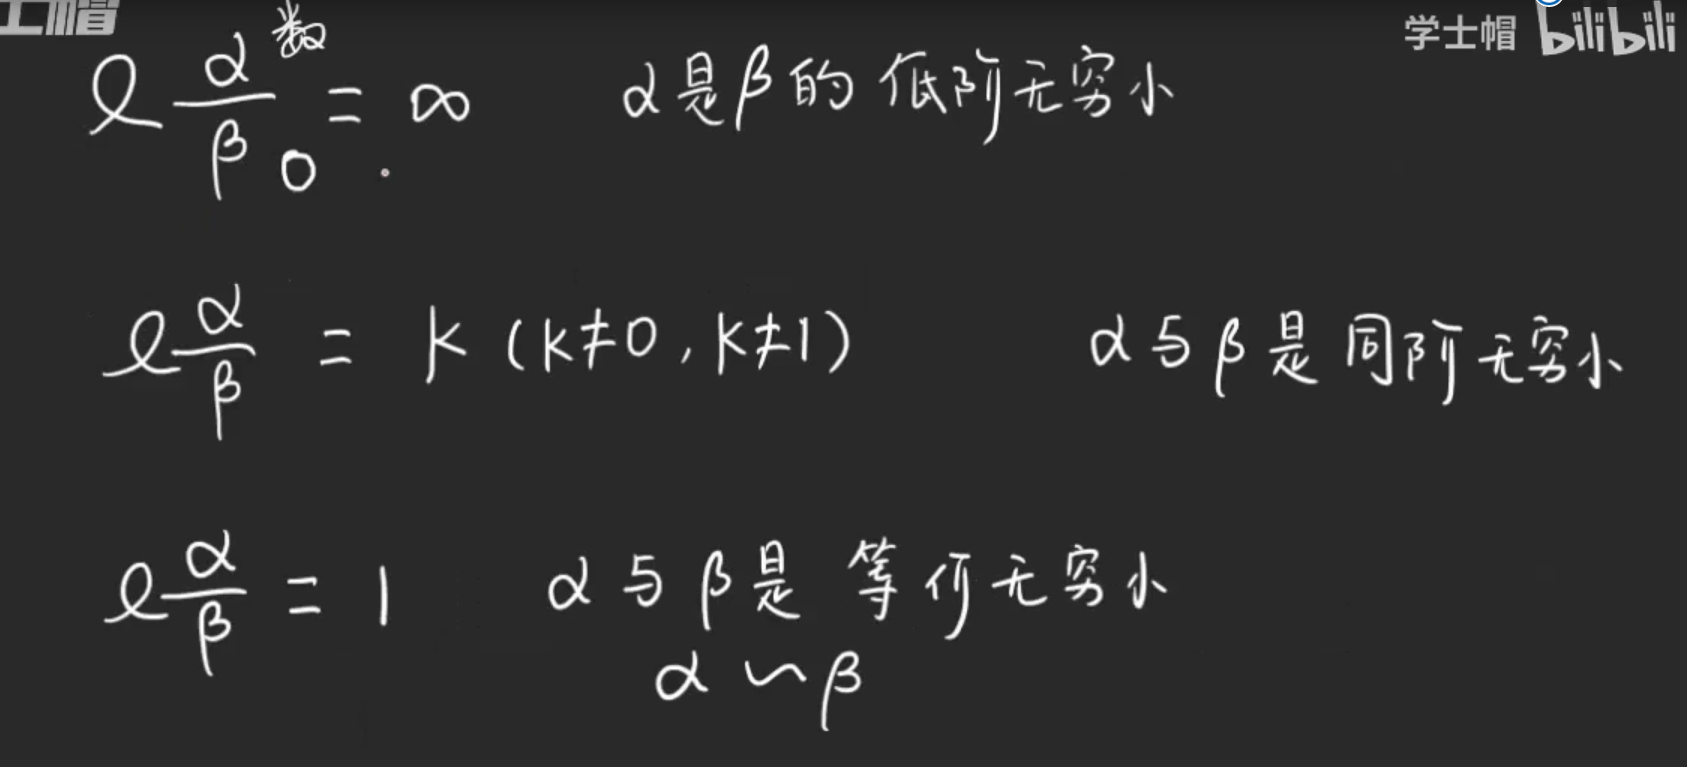 士帽
学士帽 bilibili
ℓ α/β 数 0 = ∞ α是β的低阶无穷小
ℓ α/β = k (k≠0, k≠1) α与β是同阶无穷小
ℓ α/β = 1 α与β是等价无穷小
α ∽ β